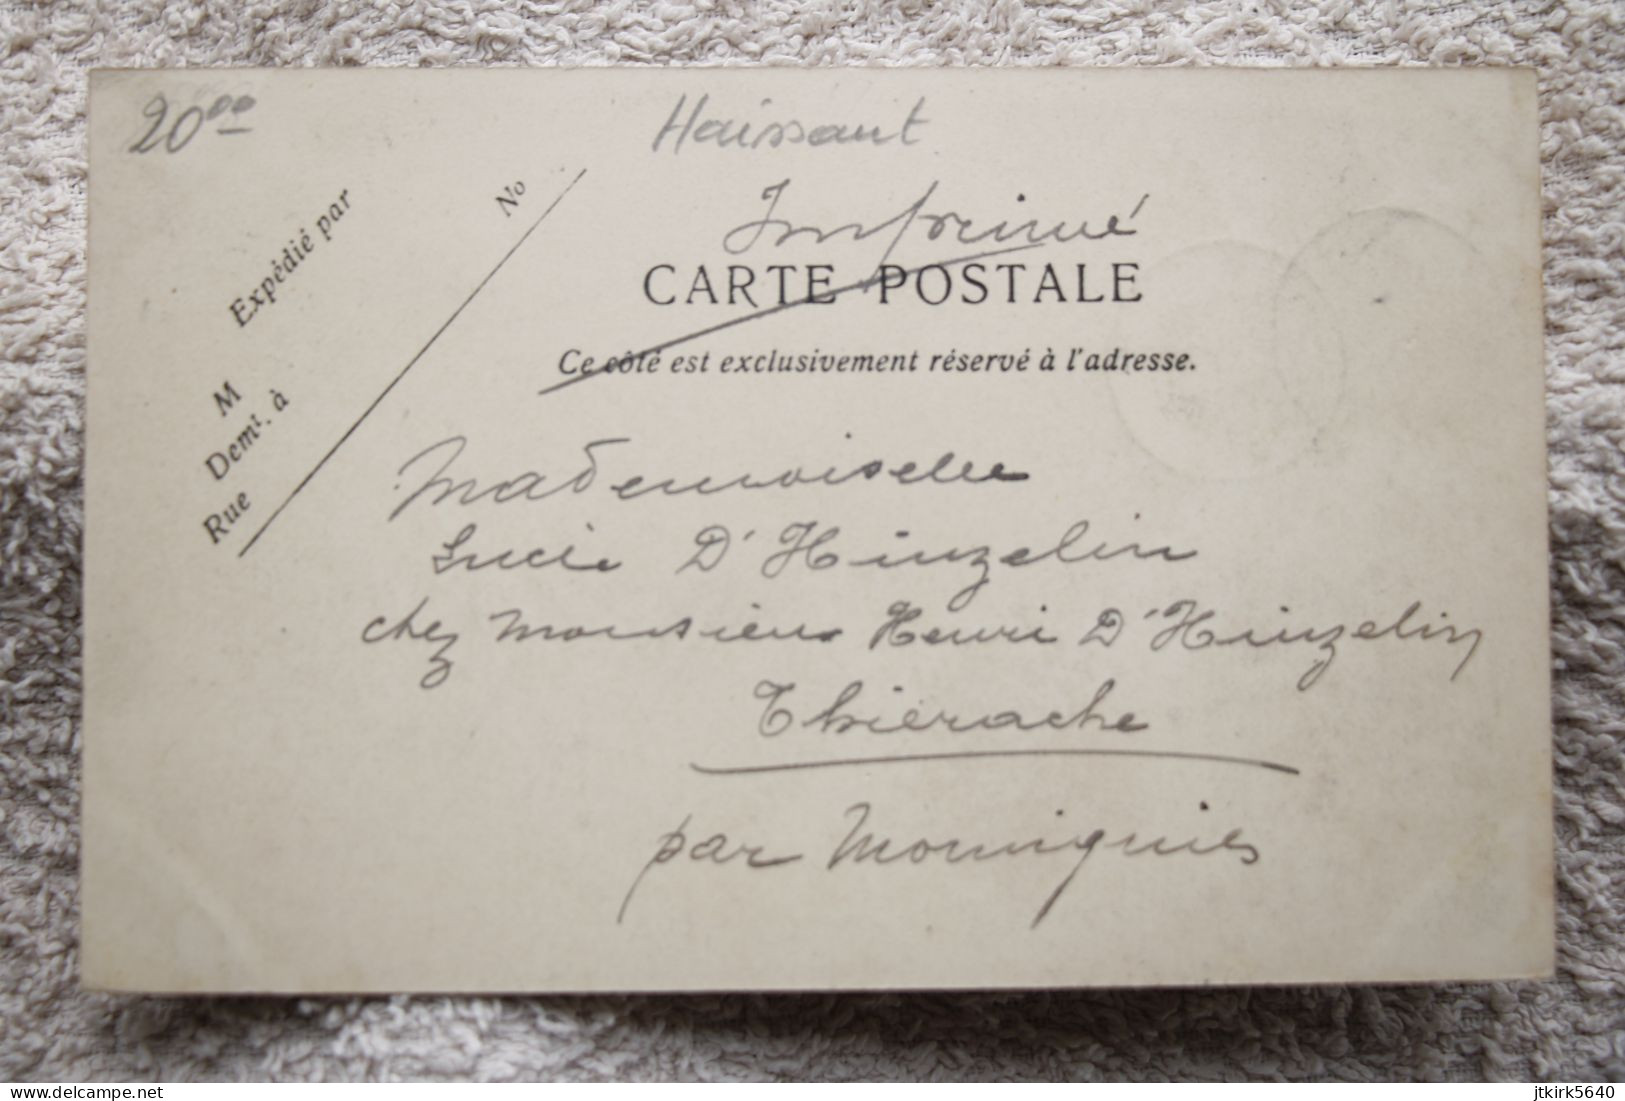 20⁰⁰
Haissant
Imprimé
Expédié par
No
M
Demt. à
Rue
CARTE POSTALE
Ce côté est exclusivement réservé à l'adresse.
Mademoiselle
Lucie D'Hinzelin
chez Monsieur Henri D'Hinzelin
Thiérache
par Momignies
www.delcampe.net
jtkirk5640